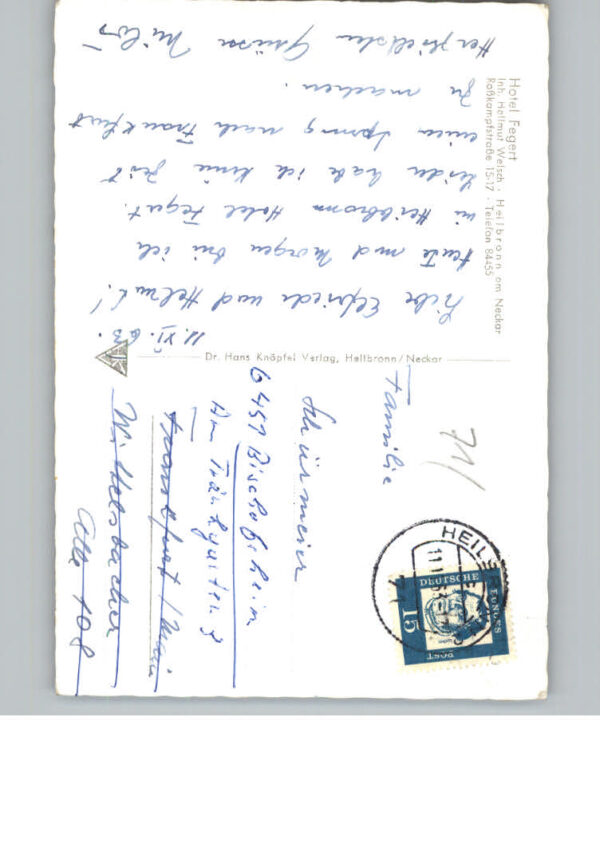 Hotel Fegert
Inh. Hellmut Welsch · Heilbronn am Neckar
Roßkampfstraße 15-17 · Telefon 84455
11. XI. 63.
Liebe Elfriede und Helmut!
Heute und Morgen bin ich
in Heilbronn Hotel Fegert.
Leider habe ich keine Zeit
einen Sprung nach Frankfurt
zu machen.
Herzlichsten Grüsse
Dr. Hans Knöpfel Verlag, Heilbronn/Neckar
71/
Familie
Schürmeier
6451 Bischofsheim
Am Tränkgarten 3
Frankfurt/Main
Wilhelmsbacher
Allee 108
HEILBRONN
DEUTSCHE
BUNDES
POST
15